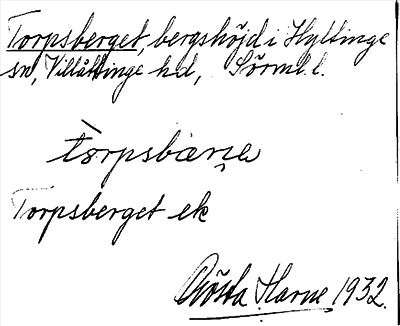 Torpsberget, bergshöjd i Hyltinge
sn, Villåttinge hd, Sörml. l.
tɔrpsbærja
Torpsberget ek
Gösta Harne 1932.